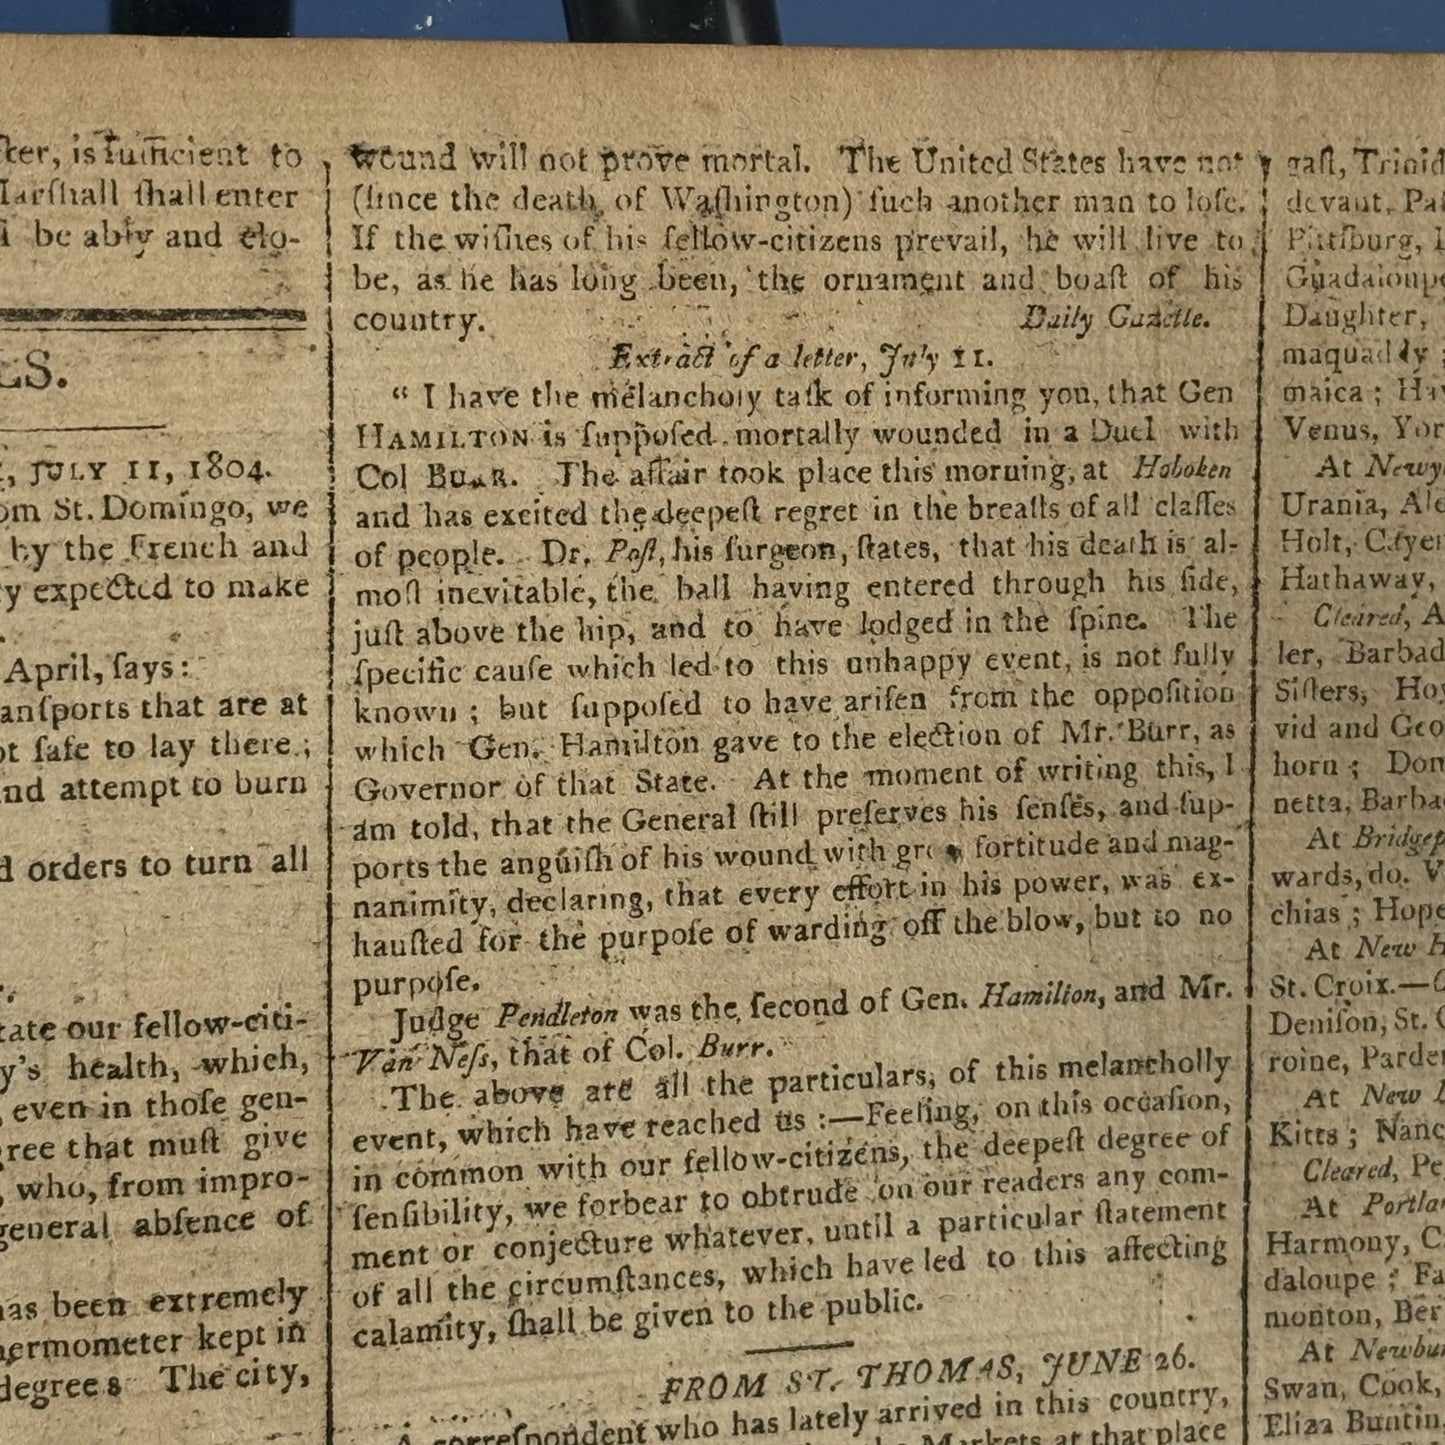 ſter, is ſufficient to
Marſhall ſhall enter
be ably and elo-
LS.
JULY 11, 1804.
om St. Domingo, we
by the French and
y expected to make
April, ſays:
anſports that are at
ot ſafe to lay there;
and attempt to burn
d orders to turn all
tate our fellow-citi-
y's health, which,
, even in thoſe gen-
gree that muſt give
, who, from impro-
general abſence of
has been extremely
hermometer kept in
degrees The city,
wound will not prove mortal. The United States have not
(ſince the death of Waſhington) ſuch another man to loſe.
If the wiſhes of his fellow-citizens prevail, he will live to
be, as he has long been, the ornament and boaſt of his
country. Daily Gazette.
Extract of a letter, July 11.
“ I have the melancholy taſk of informing you, that Gen
HAMILTON is ſuppoſed mortally wounded in a Duel with
Col BURR. The affair took place this morning, at Hoboken
and has excited the deepeſt regret in the breaſts of all claſſes
of people. Dr. Poſt, his ſurgeon, ſtates, that his death is al-
moſt inevitable, the ball having entered through his ſide,
juſt above the hip, and to have lodged in the ſpine. The
ſpecific cauſe which led to this unhappy event, is not fully
known ; but ſuppoſed to have ariſen from the oppoſition
which Gen. Hamilton gave to the election of Mr. Burr, as
Governor of that State. At the moment of writing this, I
am told, that the General ſtill preſerves his ſenſes, and ſup-
ports the anguiſh of his wound with fortitude and mag-
nanimity, declaring, that every effort in his power, was ex-
hauſted for the purpoſe of warding off the blow, but to no
purpoſe.
Judge Pendleton was the ſecond of Gen. Hamilton, and Mr.
Van Neſs, that of Col. Burr.
The above are all the particulars, of this melancholly
event, which have reached us :—Feeling, on this occaſion,
in common with our fellow-citizens, the deepeſt degree of
ſenſibility, we forbear to obtrude on our readers any com-
ment or conjecture whatever, until a particular ſtatement
of all the circumſtances, which have led to this affecting
calamity, ſhall be given to the public.
FROM ST. THOMAS, JUNE 26.
A correſpondent who has lately arrived in this country,
Markets at that place
gaſt, Trinid
devant, Pa
Pittſburg,
Guadaloupe
Daughter,
maquaddy ;
maica ; Hav
Venus, Yor
At Newy
Urania, Ale
Holt,
Hathaway,
Cleared, A
ler, Barbad
Siſters, Ho
vid and Geo
horn ; Don
netta, Barba
At Bridgep
wards, do. V
chias ; Hope
At New H
St. Croix.—C
Deniſon, St. C
roine, Parde
At New L
Kitts ; Nanc
Cleared, Pe
At Portla
Harmony, C
daloupe ; Fa
monton, Ber
At Newbu
Swan, Cook,
Eliza Buntin